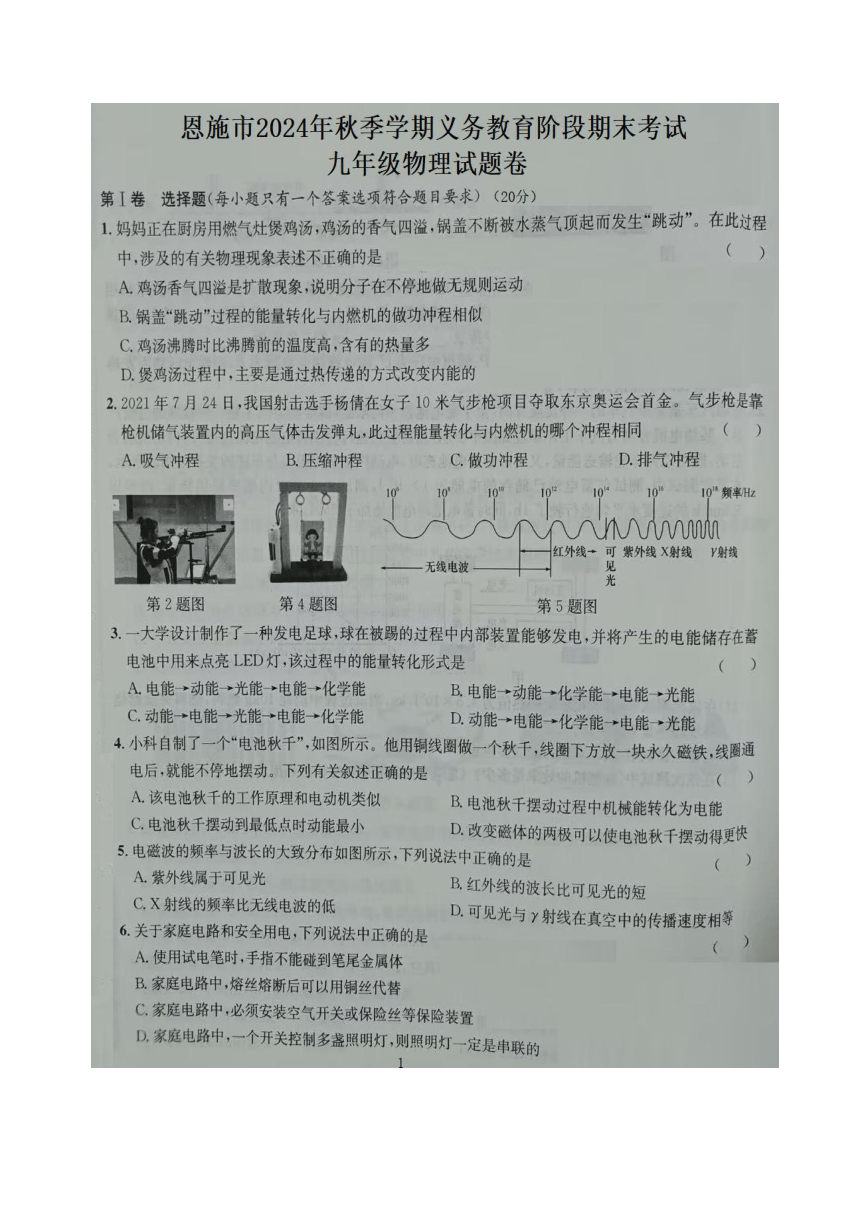 恩施市2024年秋季学期义务教育阶段期末考试
九年级物理试题卷
第Ⅰ卷 选择题(每小题只有一个答案选项符合题目要求)(20分)
1. 妈妈正在厨房用燃气灶煲鸡汤,鸡汤的香气四溢,锅盖不断被水蒸气顶起而发生“跳动”。在此过程
中,涉及的有关物理现象表述不正确的是 ( )
A. 鸡汤香气四溢是扩散现象,说明分子在不停地做无规则运动
B. 锅盖“跳动”过程的能量转化与内燃机的做功冲程相似
C. 鸡汤沸腾时比沸腾前的温度高,含有的热量多
D. 煲鸡汤过程中,主要是通过热传递的方式改变内能的
2. 2021年7月24日,我国射击选手杨倩在女子10米气步枪项目夺取东京奥运会首金。气步枪是靠
枪机储气装置内的高压气体击发弹丸,此过程能量转化与内燃机的哪个冲程相同 ( )
A. 吸气冲程 B. 压缩冲程 C. 做功冲程 D. 排气冲程
10⁶ 10⁸ 10¹⁰ 10¹² 10¹⁴ 10¹⁶ 10¹⁸ 频率/Hz
红外线 可见光 紫外线 X射线 γ射线
无线电波
第2题图 第4题图 第5题图
3. 一大学设计制作了一种发电足球,球在被踢的过程中内部装置能够发电,并将产生的电能储存在蓄
电池中用来点亮LED灯,该过程中的能量转化形式是 ( )
A. 电能→动能→光能→电能→化学能 B. 电能→动能→化学能→电能→光能
C. 动能→电能→光能→电能→化学能 D. 动能→电能→化学能→电能→光能
4. 小科自制了一个“电池秋千”,如图所示。他用铜线圈做一个秋千,线圈下方放一块永久磁铁,线圈通
电后,就能不停地摆动。下列有关叙述正确的是 ( )
A. 该电池秋千的工作原理和电动机类似 B. 电池秋千摆动过程中机械能转化为电能
C. 电池秋千摆动到最低点时动能最小 D. 改变磁体的两极可以使电池秋千摆动得更快
5. 电磁波的频率与波长的大致分布如图所示,下列说法中正确的是 ( )
A. 紫外线属于可见光 B. 红外线的波长比可见光的短
C. X射线的频率比无线电波的低 D. 可见光与γ射线在真空中的传播速度相等
6. 关于家庭电路和安全用电,下列说法中正确的是 ( )
A. 使用试电笔时,手指不能碰到笔尾金属体
B. 家庭电路中,熔丝熔断后可以用铜丝代替
C. 家庭电路中,必须安装空气开关或保险丝等保险装置
D. 家庭电路中,一个开关控制多盏照明灯,则照明灯一定是串联的
1